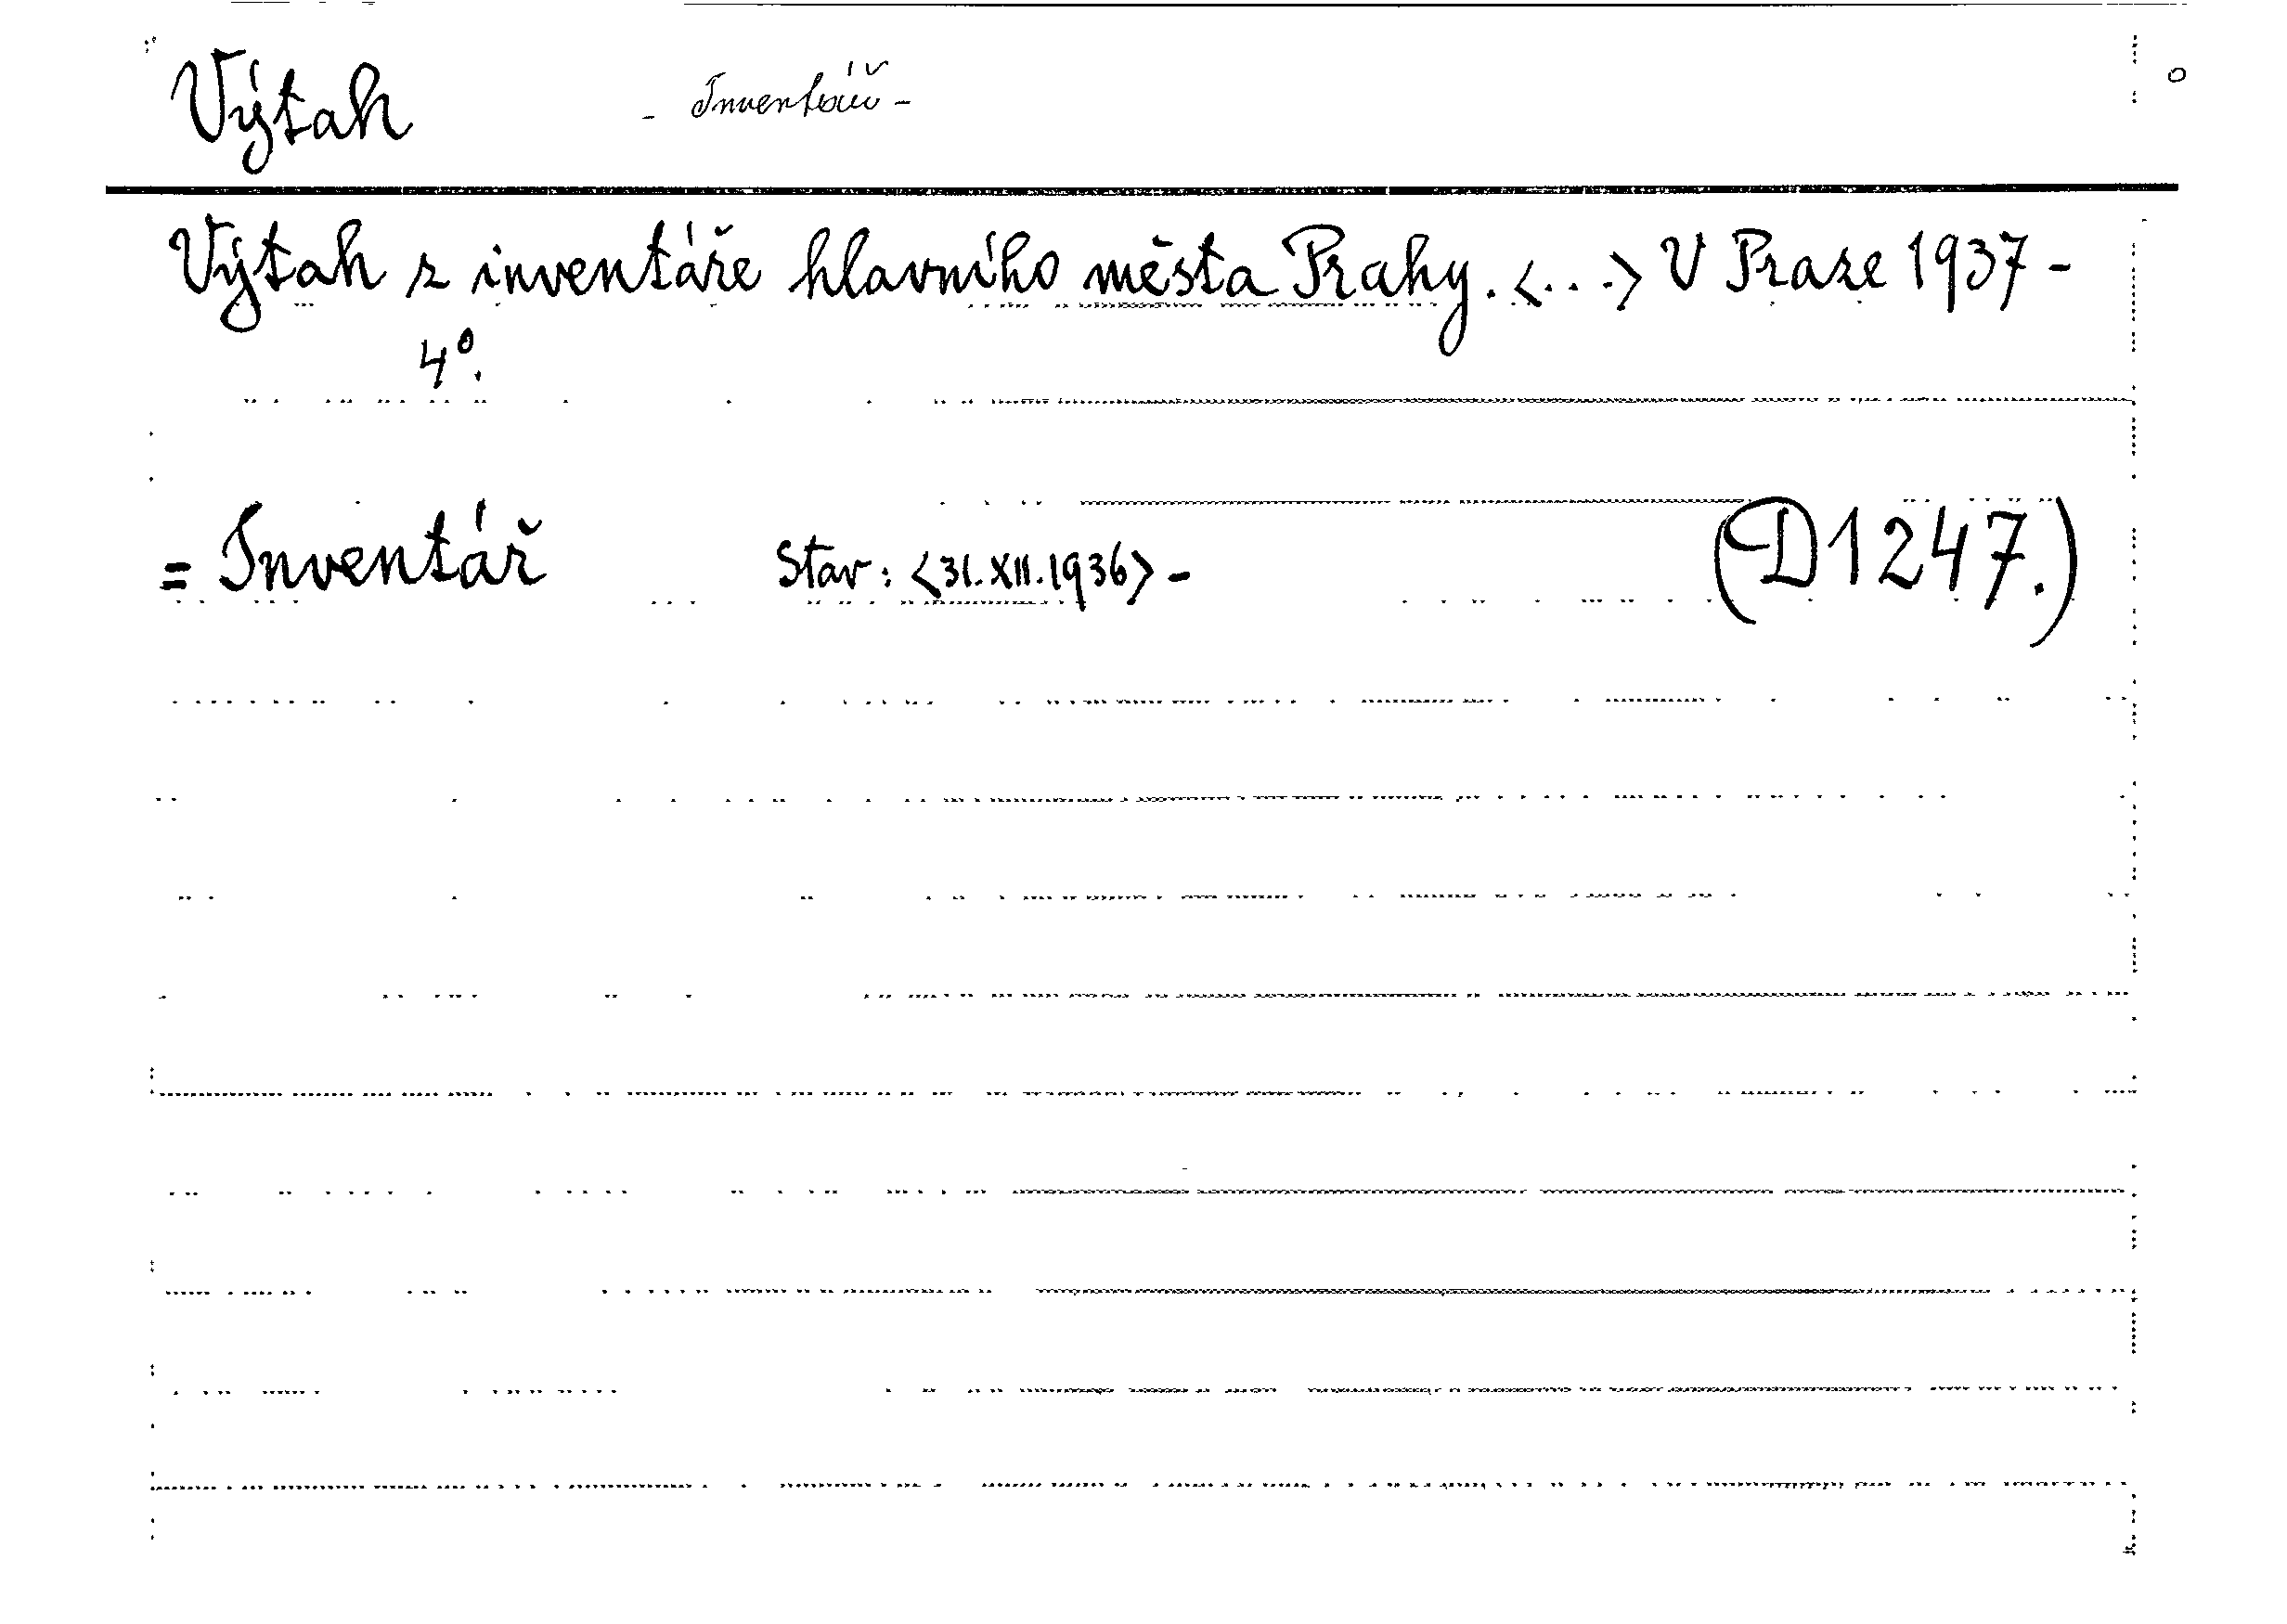 Výtah - Inventář -
Výtah z inventáře hlavního města Prahy. <...> V Praze 1937 -
4°.
= Inventář Stav: <31.XII.1936> - (D1247.)